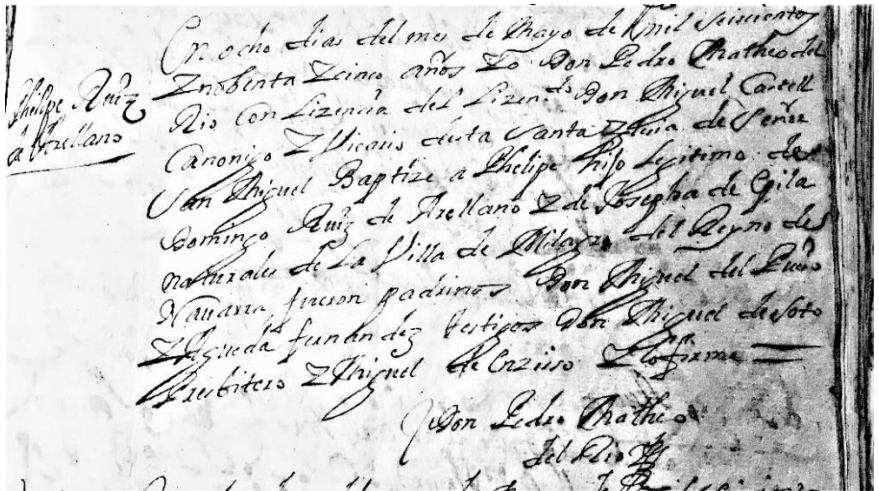 Phelipe Ruiz
de Arellano
En ocho dias del mes de Mayo de mil seiscientos
Y nobenta Y cinco años Yo Don Pedro Matheo del
Rio Con Lizencia del Lizen.do Don Miguel Castell
Canonigo Y Vicario desta Santa Yglesia de Señor
San Miguel Baptize a Phelipe hijo legitimo de
Domingo Ruiz de Arellano Y de Josepha de Gila
naturales de La Villa de Milagro del Reyno de
Nauarra fueron padrinos Don Miguel del
Y Agueda fernandez testigos Don Miguel de Soto
Presbitero Y Miguel de Enziso Y lo firme
Don Pedro Matheo
del Rio